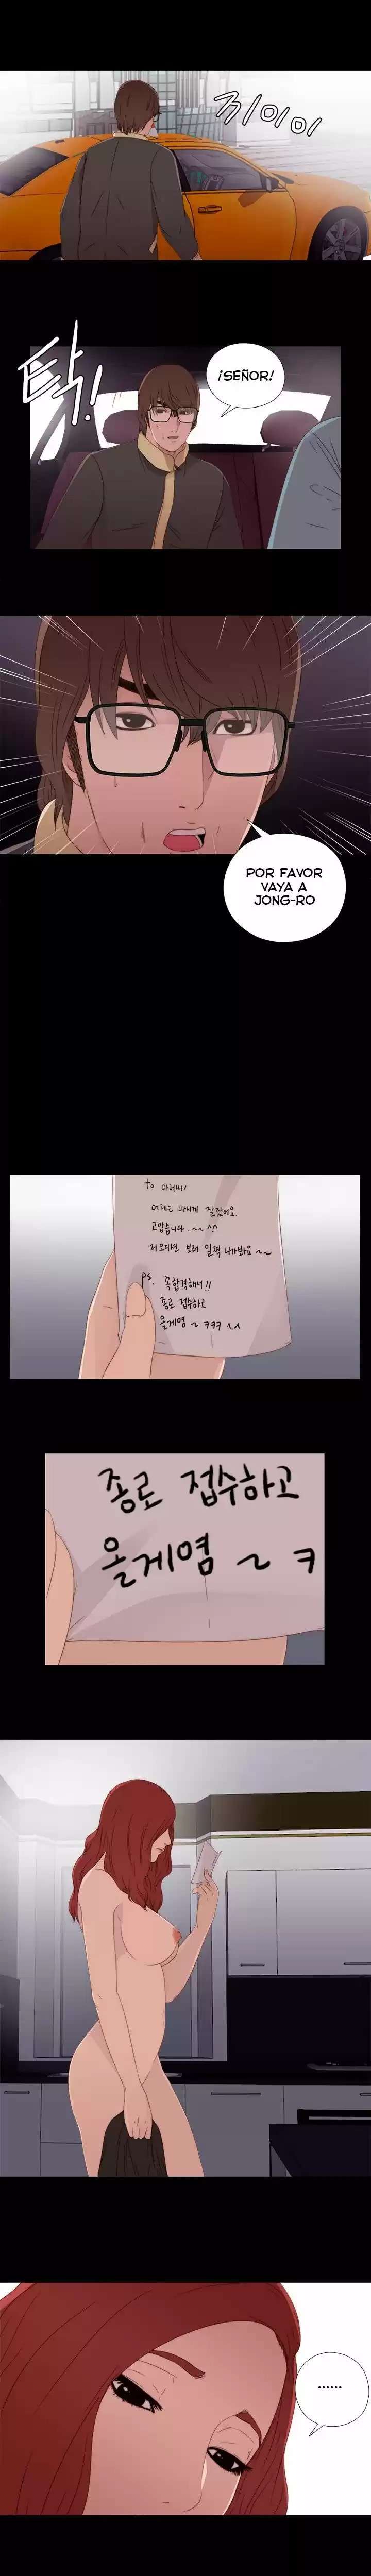 끼이이
탁!
¡SEÑOR!
POR FAVOR
VAYA A
JONG-RO
to 아저씨!
어제는 마시게 잘잤어요.
고맙습니다. ~~ ^^
ps. 꼭합격해서!!
종로 접수하고
올게염 ~ ㅋㅋㅋ ^.^
종로 접수하고
올게염 ~ ㅋ
......